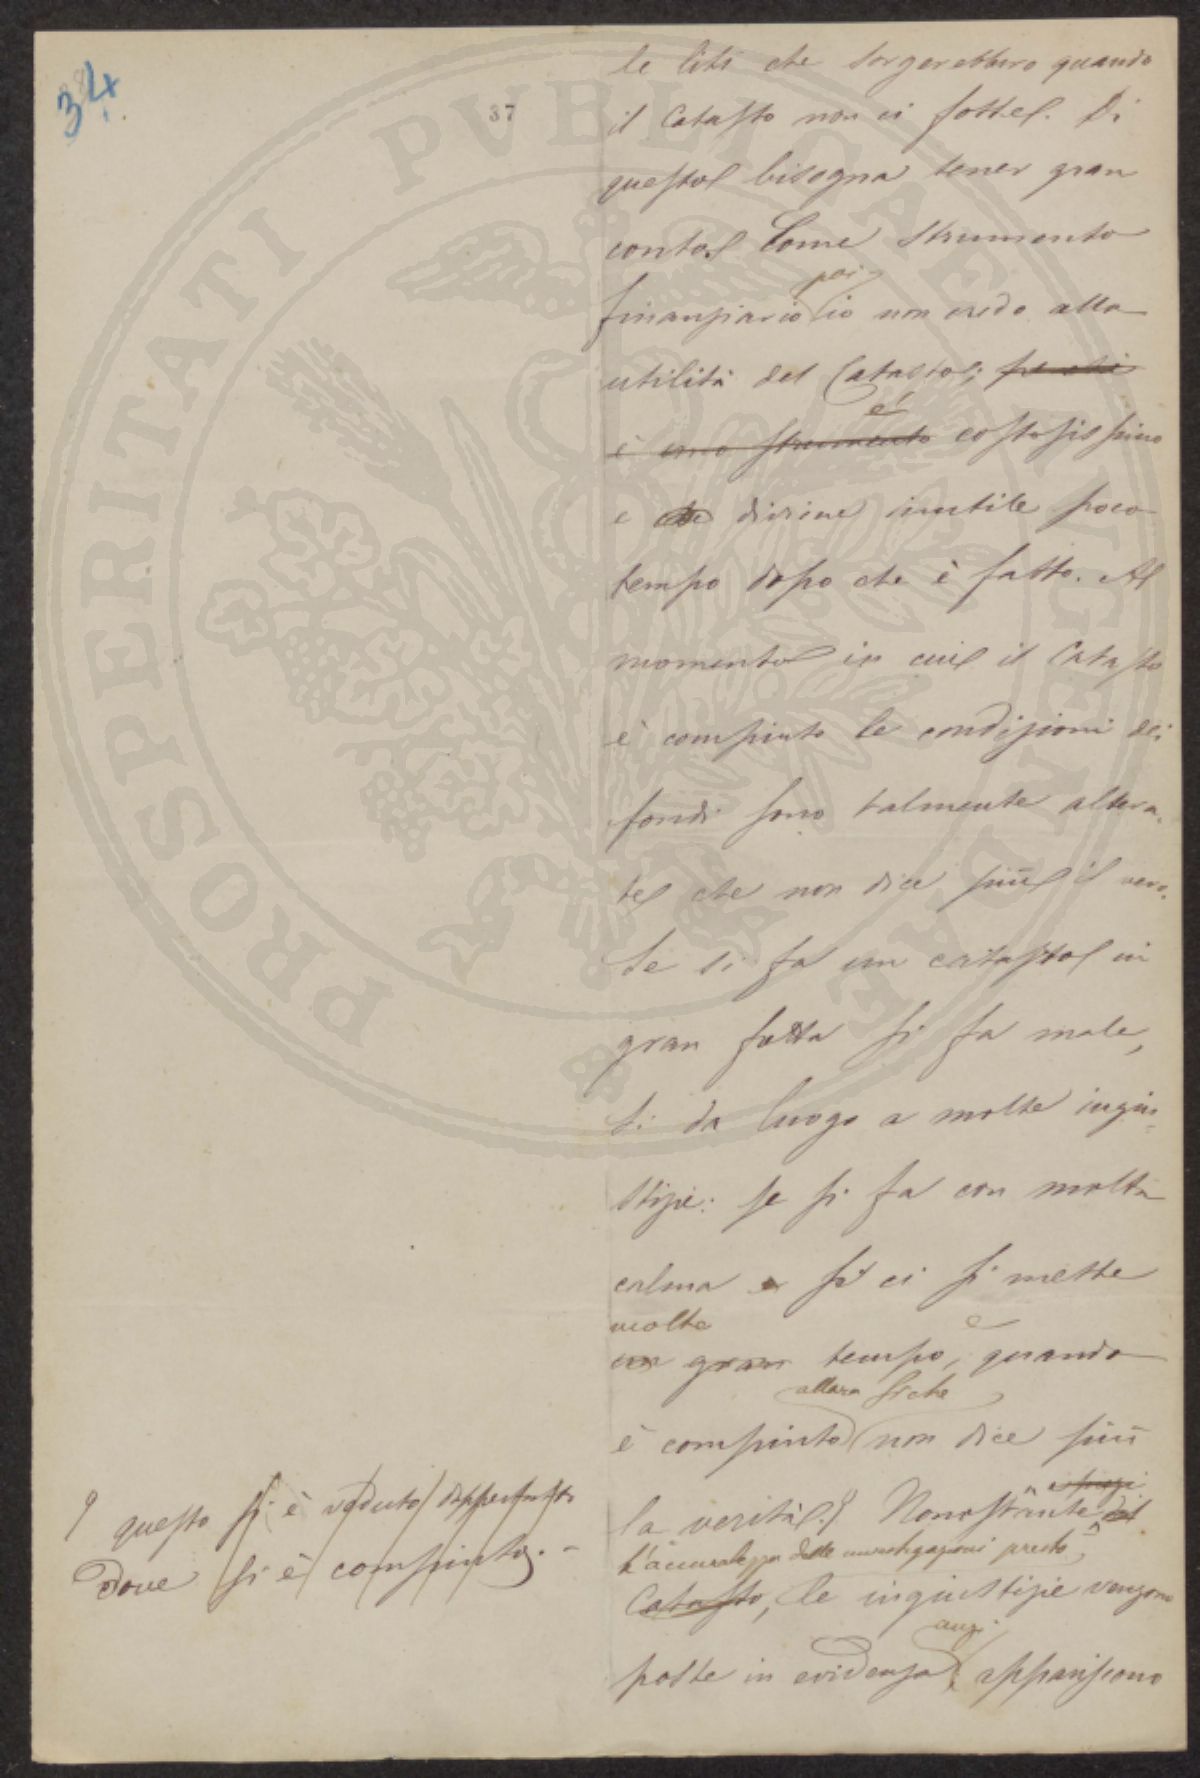 34
37
PROSPERITATI PVBLICAE AVGENDAE
le liti che sorgerebbero quando
il Catasto non ci fosse. Di
questo bisogna tener gran
conto. Come strumento
poi
finanziario io non credo alla
utilità del Catasto; perchè
è
è uno strumento costosissimo
e diviene inutile poco
tempo dopo che è fatto. Al
momento in cui il Catasto
è compiuto le condizioni dei
fondi sono talmente altera-
te che non dice più il vero.
Se si fa un catasto in
gran fretta si fa male,
si da luogo a molte ingiu-
stizie: se si fa con molta
calma e si ci si mette
molto
un gran tempo, quando
allora sicchè
è compiuto non dice più
la verità. Nonostante del
l'accuratezza delle investigazioni presto
Catasto, le ingiustizie vengono
anzi
poste in evidenza, appariscono
questo si è veduto dappertutto
dove si è compiuto.